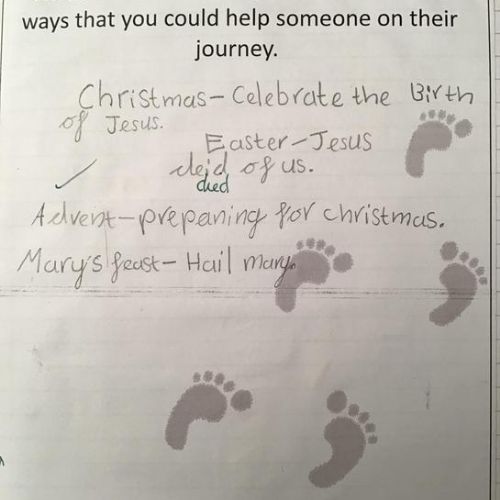 ways that you could help someone on their
journey.
Christmas- Celebrate the Birth
of Jesus.
Easter-Jesus
deid of us.
died
Advent-prepaning for christmas.
Mary's feast- Hail mary.